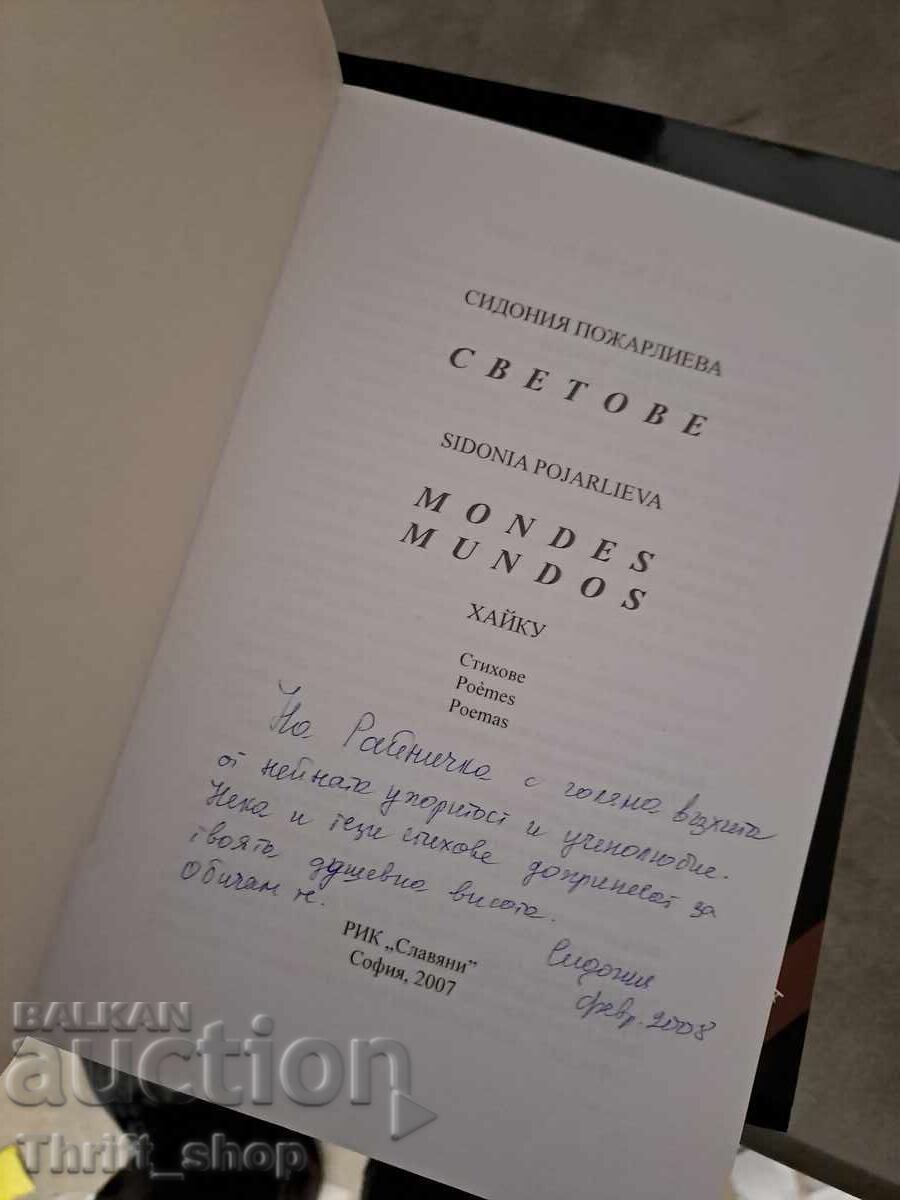 СИДОНИЯ ПОЖАРЛИЕВА
СВЕТОВЕ
SIDONIA POJARLIEVA
MONDES
MUNDOS
ХАЙКУ
Стихове
Poèmes
Poemas
На Райничка с голяма възхита
от нейната упоритост и ученолюбие.
Нека и тези стихове допринесат за
твоята душевна висота.
Обичам те.
Сидония
февр. 2008
РИК „Славяни”
София, 2007
BALKAN
auction
Thrift_shop